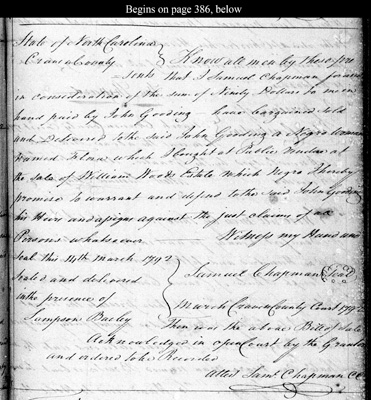 Begins on page 386, below
State of North Carolina
Craven County } Know all men by these pre
sents that I Samuel Chapman for and
in consideration of the sum of Ninety Dollars to me in
hand paid by John Gooding have bargained sold
and Delivered to the said John Gooding a Negro woman
named which I bought at Public Vendue at
the sale of William Woods Estate which Negro I hereby
promise to warrant and defend to the said John Gooding
his Heirs and assigns against the just claims of all
Persons whatsoever Witness my Hand and
Seal this 14th March 1792
Sealed and delivered } Samuel Chapman (Seal)
in the presence of
March Craven County Court 1792
Sampson Baeley
Then was the above Bill of Sale
Acknowledged in open Court by the Grantor
and ordered to be Recorded
Attest Saml. Chapman CC